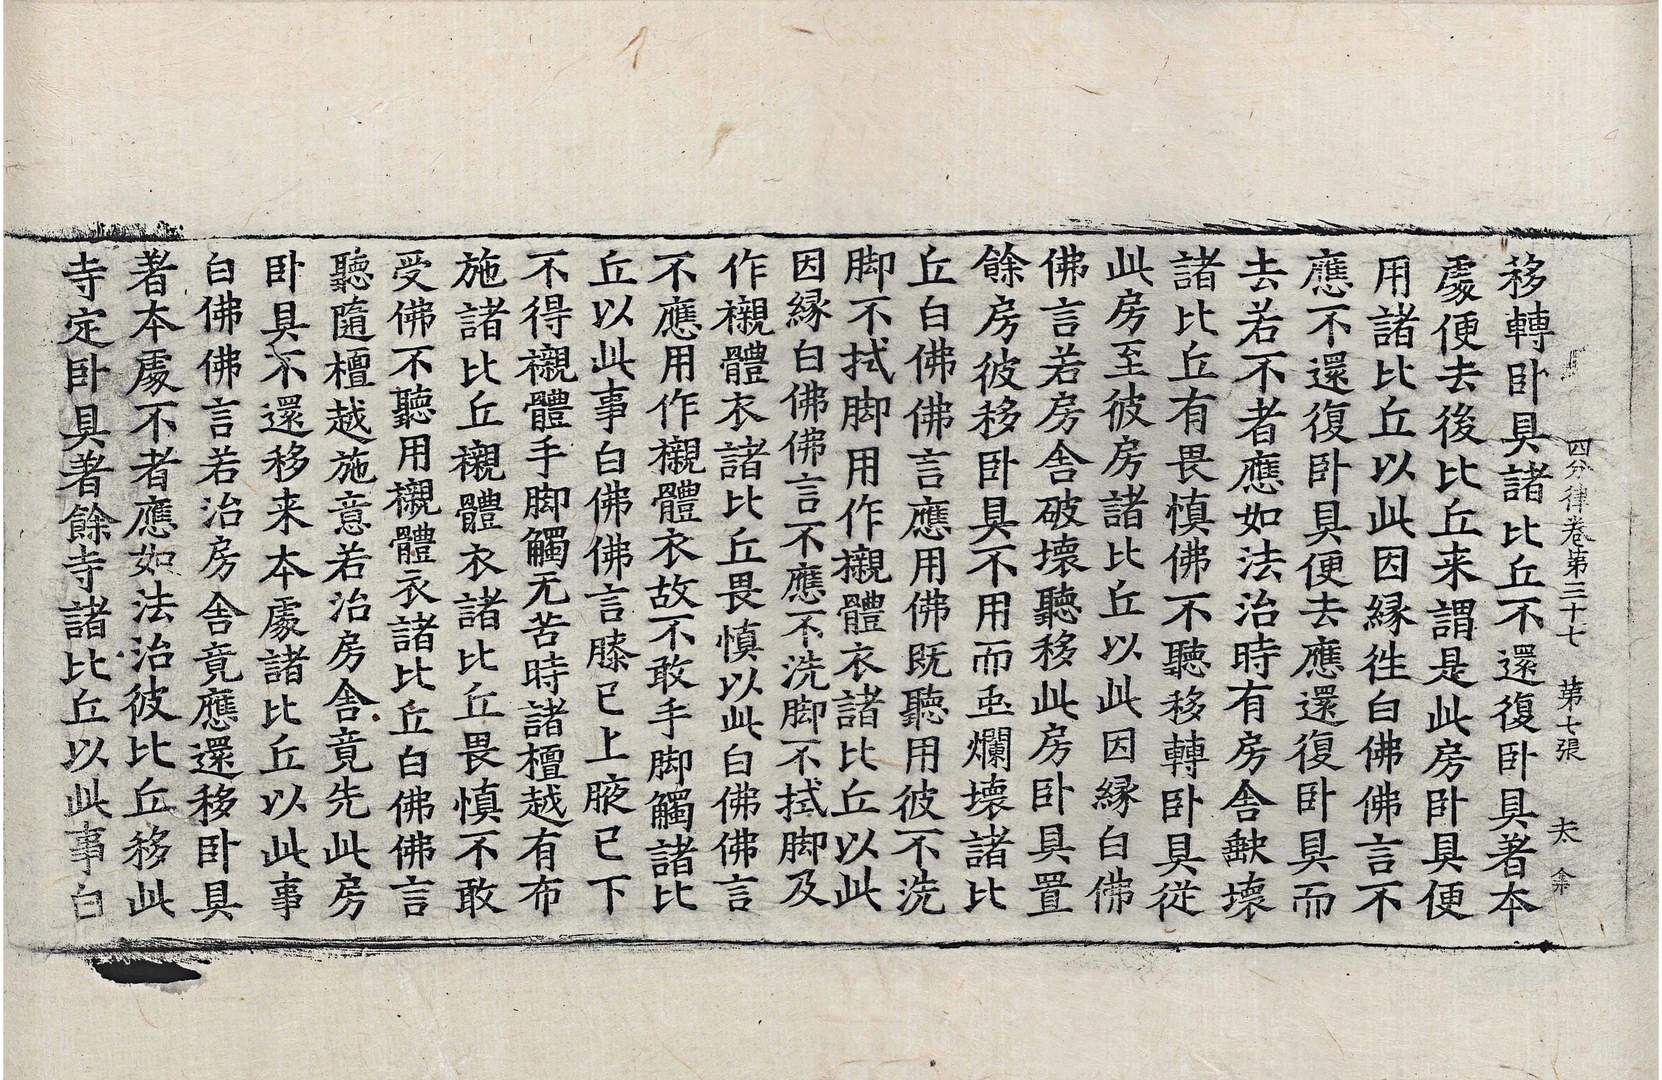 四分律卷第三十七 第七張 夫 弇
移轉卧具諸比丘不還復卧具著本
處便去後比丘来謂是此房卧具便
用諸比丘以此因縁徃白佛佛言不
應不還復卧具便去應還復卧具而
去若不者應如法治時有房舍缺壞
諸比丘有畏慎佛不聽移轉卧具從
此房至彼房諸比丘以此因縁白佛
佛言若房舍破壞聽移此房卧具置
餘房彼移卧具不用而䖝爛壞諸比
丘白佛佛言應用佛既聽用彼不洗
脚不拭脚用作襯體衣諸比丘以此
因縁白佛佛言不應不洗脚不拭脚及
作襯體衣諸比丘畏慎以此白佛佛言
不應用作襯體衣故不敢手脚觸諸比
丘以此事白佛佛言膝已上腋已下
不得襯體手脚觸无苦時諸檀越有布
施諸比丘襯體衣諸比丘畏慎不敢
受佛不聽用襯體衣諸比丘白佛佛言
聽隨檀越施意若治房舍竟先此房
卧具不還移来本處諸比丘以此事
白佛佛言若治房舍竟應還移卧具
著本處不者應如法治彼比丘移此
寺定卧具著餘寺諸比丘以此事白